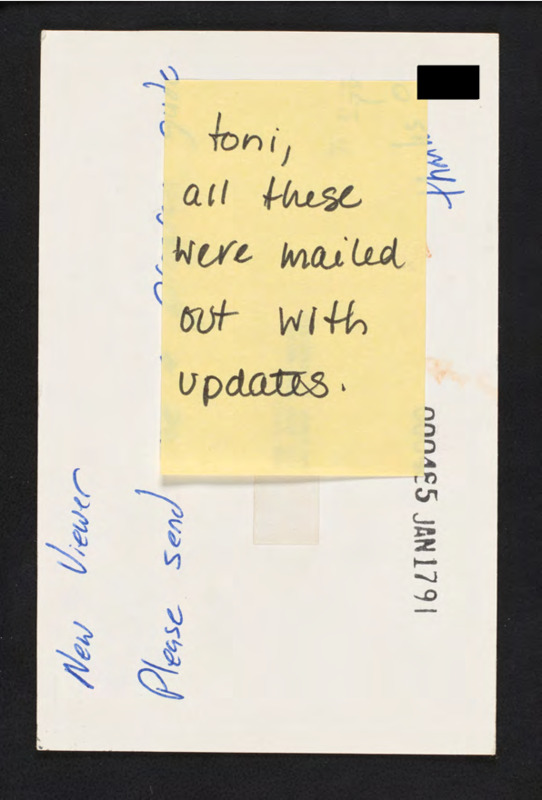 toni,
all these
were mailed
out with
updates.
New Viewer
Please send
JAN1791